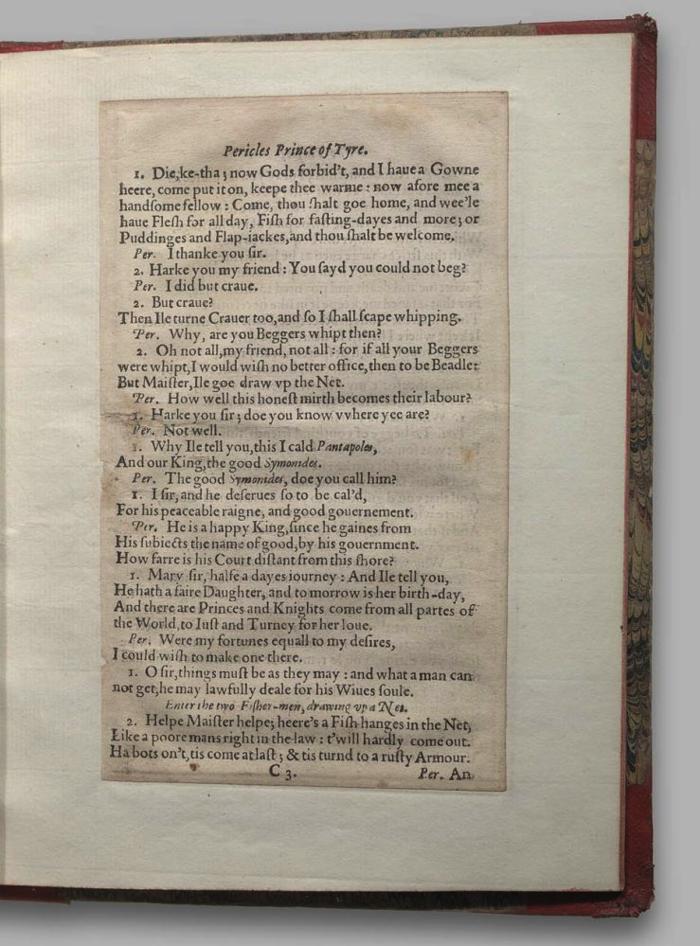 Pericles Prince of Tyre.
1. Die, ke-tha; now Gods forbid't, and I haue a Gowne
heere, come put it on, keepe thee warme: now afore mee a
handsome fellow: Come, thou shalt goe home, and wee'le
haue Flesh for all day, Fish for fasting-dayes and more; or
Puddinges and Flap-iackes, and thou shalt be welcome.
Per. I thanke you sir.
2. Harke you my friend: You sayd you could not beg?
Per. I did but craue.
2. But craue?
Then Ile turne Crauer too, and so I shall scape whipping.
Per. Why, are you Beggers whipt then?
2. Oh not all, my friend, not all: for if all your Beggers
were whipt, I would wish no better office, then to be Beadle:
But Maister, Ile goe draw vp the Net.
Per. How well this honest mirth becomes their labour?
1. Harke you sir; doe you know vvhere yee are?
Per. Not well.
1. Why Ile tell you, this I cald Pantapoles,
And our King, the good Symonides.
Per. The good Symonides, doe you call him?
1. I sir, and he deserues so to be cal'd,
For his peaceable raigne, and good gouernement.
Per. He is a happy King, since he gaines from
His subiects the name of good, by his gouernment.
How farre is his Court distant from this shore?
1. Mary sir, halfe a dayes iourney: And Ile tell you,
He hath a faire Daughter, and to morrow is her birth-day,
And there are Princes and Knights come from all partes of
the World, to Iust and Turney for her loue.
Per. Were my fortunes equall to my desires,
I could wish to make one there.
1. O sir, things must be as they may: and what a man can
not get, he may lawfully deale for his Wiues soule.
Enter the two Fisher-men, drawing vp a Net.
2. Helpe Maister helpe; heere's a Fish hanges in the Net,
Like a poore mans right in the law: t'will hardly come out.
Ha bots on't, tis come at last; & tis turnd to a rusty Armour.
C 3. Per. An